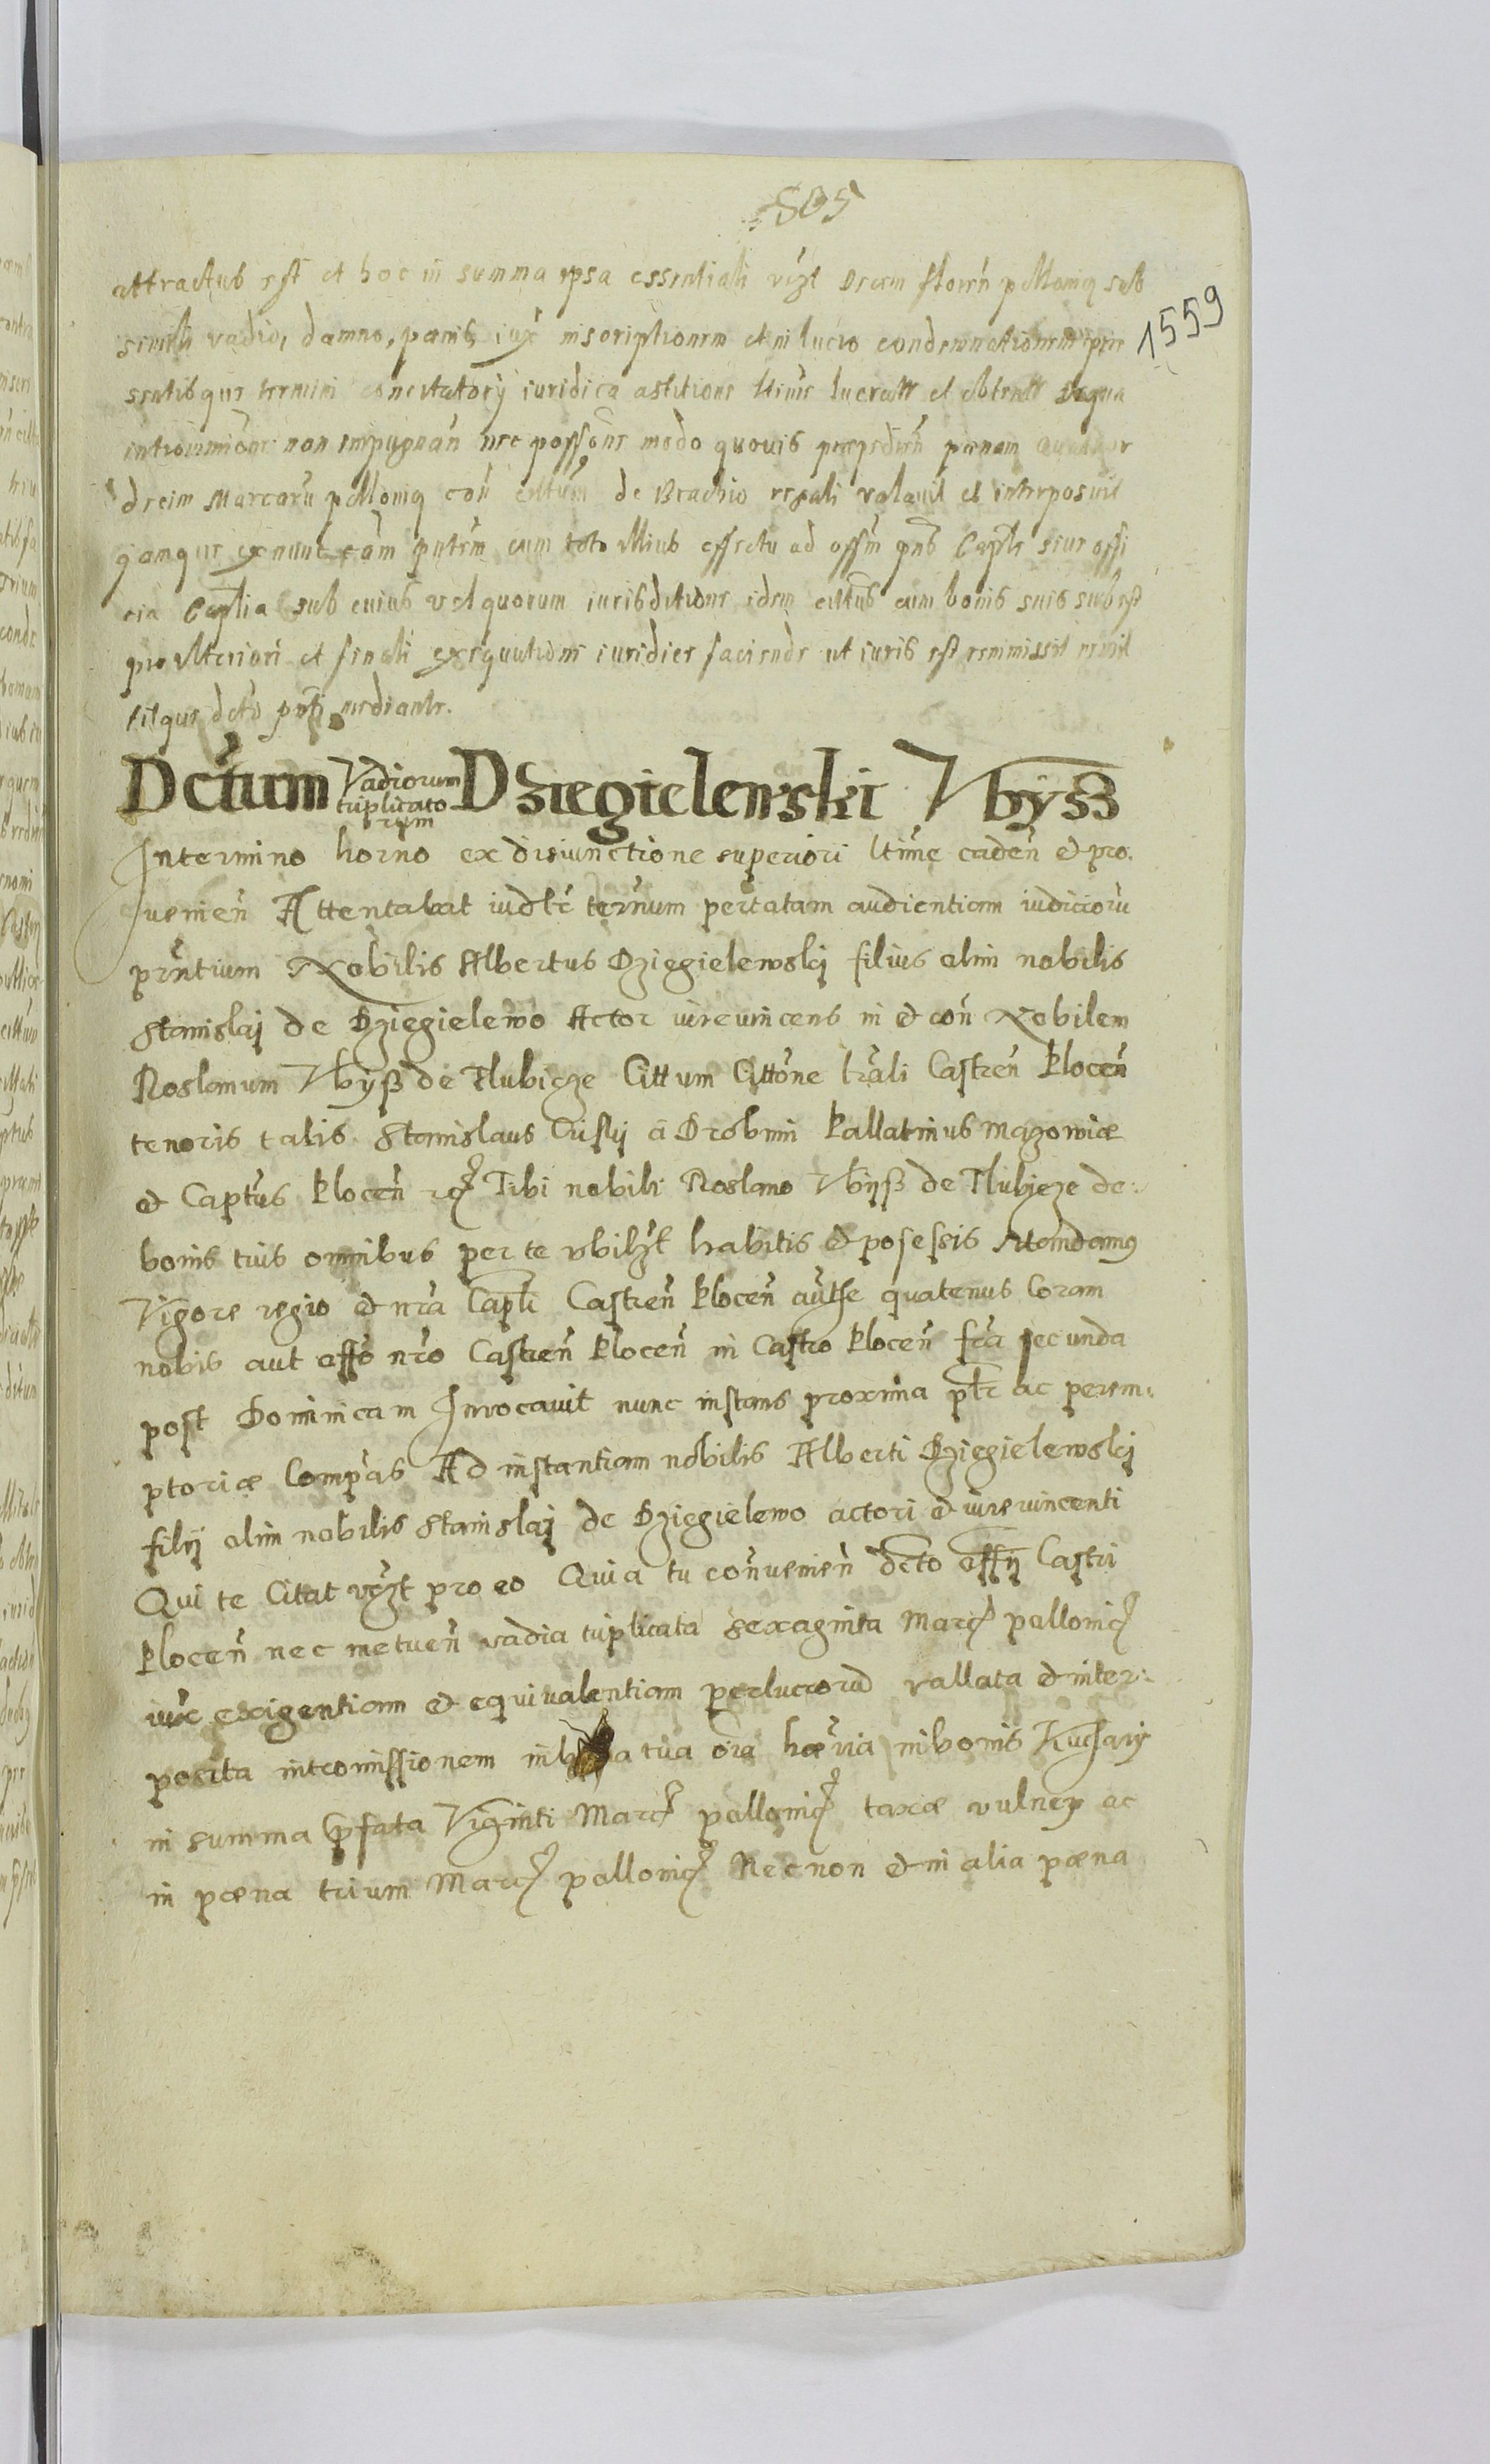 805
1559
attractus est et hoc in summa ipsa essentiali vizt decem floren pollonicz sub
simili vadio, damno, pœnis, iux inscriptionem et in lucro condemnationem
sentibque termini concitatorij iuridica astitione ltime lucratr et obtentr
intromnione non impugnan nec possone modo quovis præpedien pœnam
decim Marcaru pollonicz con cittum de Brachio regali valavit et interposuit
eamque ex nunc eam cum toto illius effectu ad offm Capte sive offi
cia Captlia sub cuius vel quorum iurisditione idem cittus cum bonis suis subest
pro ulteriori et finali exequutione iuridice faciende ut iuris est remmissit remit
titque dcto pnti mediante.
Dctum Vadiorum triplicatorum Dziegielewski Vbysz
In termino horno ex disiunctione superiori ltime caden et pro:
venien Attentabat iudtr ternum per totam audientiam iudicioru
prntium Nobilis Albertus Dziegielewskj filius olim nobilis
Stanislaj de Dziegielewo Actor iurevincens in et con Nobilem
Roslanum Vbysz de Tlubicze Cittum Cittone lrali Castren Plocen
tenoris talis. Stanislaus Crisky a Drobnin Pallatinus Mazowiæ
et Captus Plocen rcz Tibi nobili Roslano Vbysz de Tlubicze de:
bonis tuis omnibus per te vbilzt habitis et posessis Mandamus
Vigore regio et nra Capli Castren Plocen authe quatenus Coram
nobis aut offo nro Castren Plocen in Castro Plocen fra secunda
post Dominicam Invocavit nunc instans proxima ptr ac perem:
ptoriæ Compas Ad instantiam nobilis Alberti Dziegielewskj
filij olim nobilis Stanislaj de Dziegielewo actori et iurevincenti
Qui te Citat vizt pro eo Quia tu convenien dcto offij Castri
Plocen nec metuen vadia triplicata sexaginta Marcz pollonicz
iux exigentiam et equivalentiam perlucrorum vallata et inter:
posita intromissionem in tua ora hæria in bonis Kuchary
in summa pfata Viginti Marcz pollonicz taxæ vulnerum ac
in pœna trium Marcz pollonicz Necnon et in alia pœna